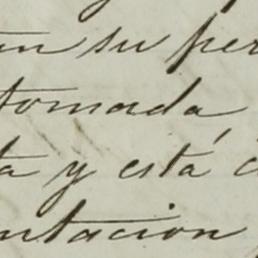 en su per
tomada,
ta y está
ntacion